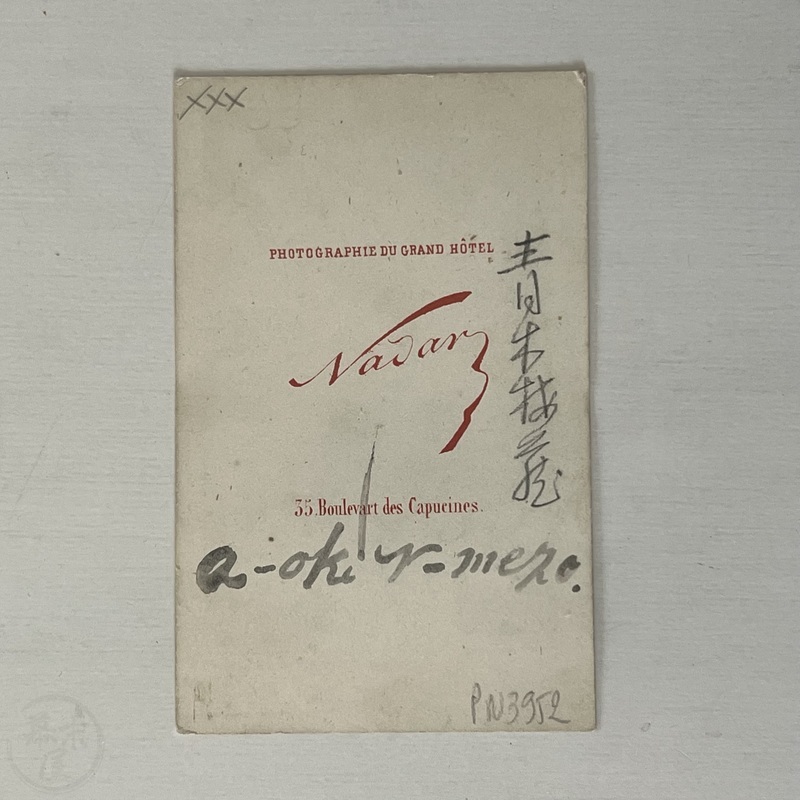 xxx
PHOTOGRAPHIE DU GRAND HÔTEL
Nadar
35. Boulevart des Capucines.
青木梅蔵
a-oki v-mezo.
PN3952